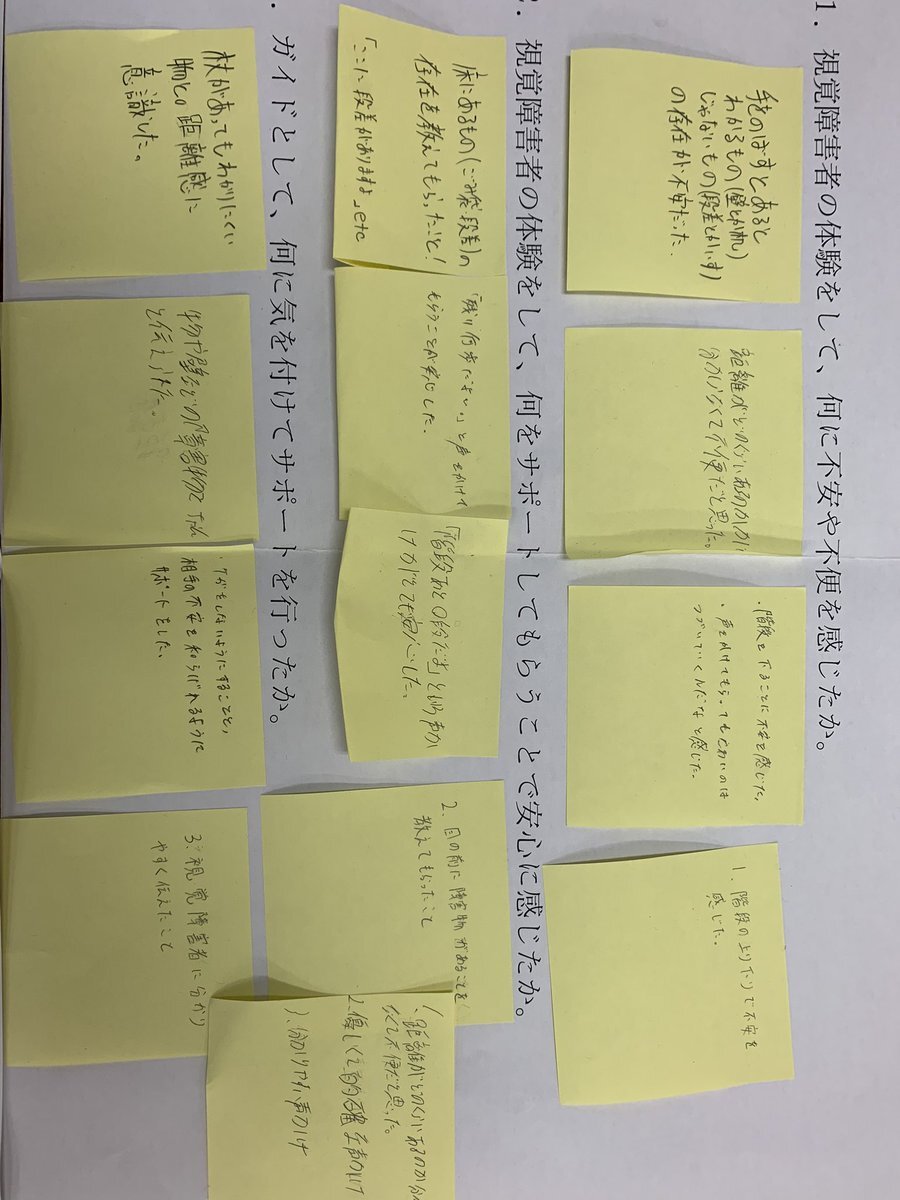 1．視覚障害者の体験をして、何に不安や不便を感じたか。
手をのばすとあると
わかるもの(壁とか机)
じゃないもの(段差とかいす)
の存在が不安だった。
距離がどのくらいあるのかが
分からなくて不便だと思った。
・階段を下ることに不安を感じた。
・声をかけてもらってもこわいのは
つづいていくんだなと感じた。
1、階段の上り下りで不安を
感じた。
2．視覚障害者の体験をして、何をサポートしてもらうことで安心に感じたか。
床にあるもの(ごみ袋、段差)の
存在を教えてもらったこと!
「ここに段差がありますよ」etc
「残り何歩だよ」と声をかけて
もらうことが安心した。
「階段あと〇段だよ」という声か
けがとても安心した。
2、目の前に障害物があることを
教えてもらったこと
．ガイドとして、何に気を付けてサポートを行ったか。
杖があってもわかりにくい
物との距離感に
意識した。
物や壁などの障害物を
と伝えられた。
・ケガをしないようにすることと、
相手の不安を和らげれるように
サポートをした。
3、視覚障害者に分かり
やすく伝えたこと
1、距離がどのくらいあるのか分か
なくて不便だと思った。
2、優しくて的確な声かけ
3、分かりやすい声かけ